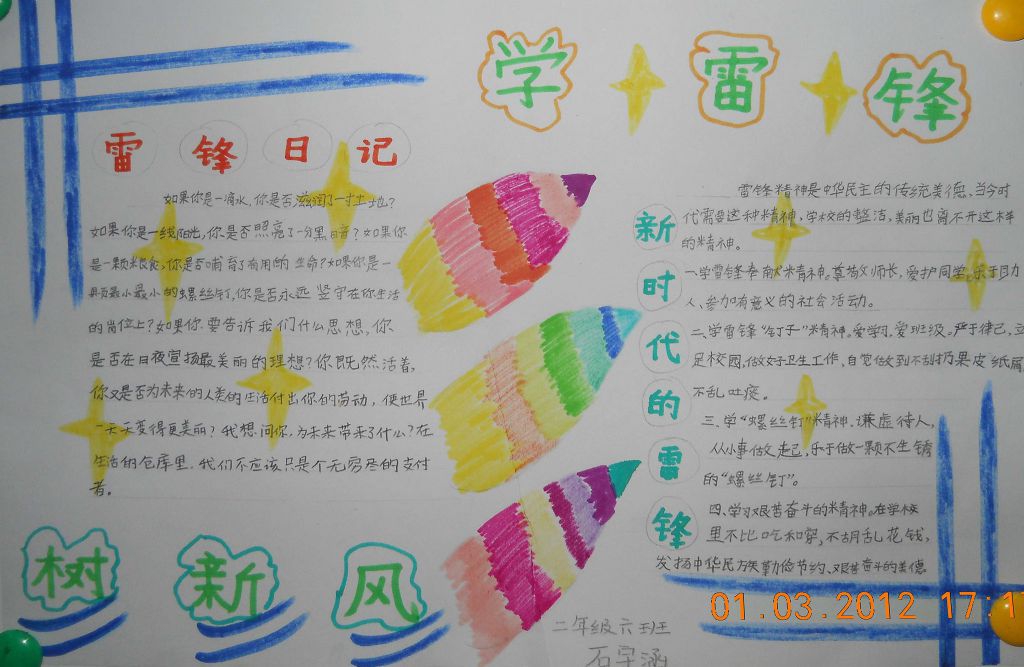 学雷锋
雷锋日记
如果你是一滴水,你是否滋润了一寸土地?
如果你是一线阳光,你是否照亮了一分黑暗?如果你
是一颗粮食,你是否哺育了有用的生命?如果你是一
颗最小最小的螺丝钉,你是否永远坚守在你生活
的岗位上?如果你要告诉我们什么思想,你
是否在日夜宣扬最美丽的理想?你既然活着,
你又是否为未来的人类的生活付出你的劳动,使世界
一天天变得更美丽?我想问你,为未来带来了什么?在
生活的仓库里,我们不应该只是个无穷尽的支付
者。
新时代的雷锋
雷锋精神是中华民主的传统美德、当今时
代需要这种精神,学校的整洁,美丽也离不开这样
的精神。
一.学雷锋奉献精神。尊敬师长,爱护同学,乐于助
人、参加有意义的社会活动。
二、学雷锋“钉子”精神。爱学习、爱班级。严于律己,立
足校园,做好卫生工作,自觉做到不乱扔果皮纸屑
不乱吐痰。
三、学“螺丝钉”精神.谦虚待人,
从小事做起,乐于做一颗不生锈
的“螺丝钉”。
四、学习艰苦奋斗的精神。在学校
里不比吃和穿,不胡乱花钱,
发扬中华民族勤俭节约、艰苦奋斗的美德
树新风
二年级六班
石宇涵
01.03.2012 17:1